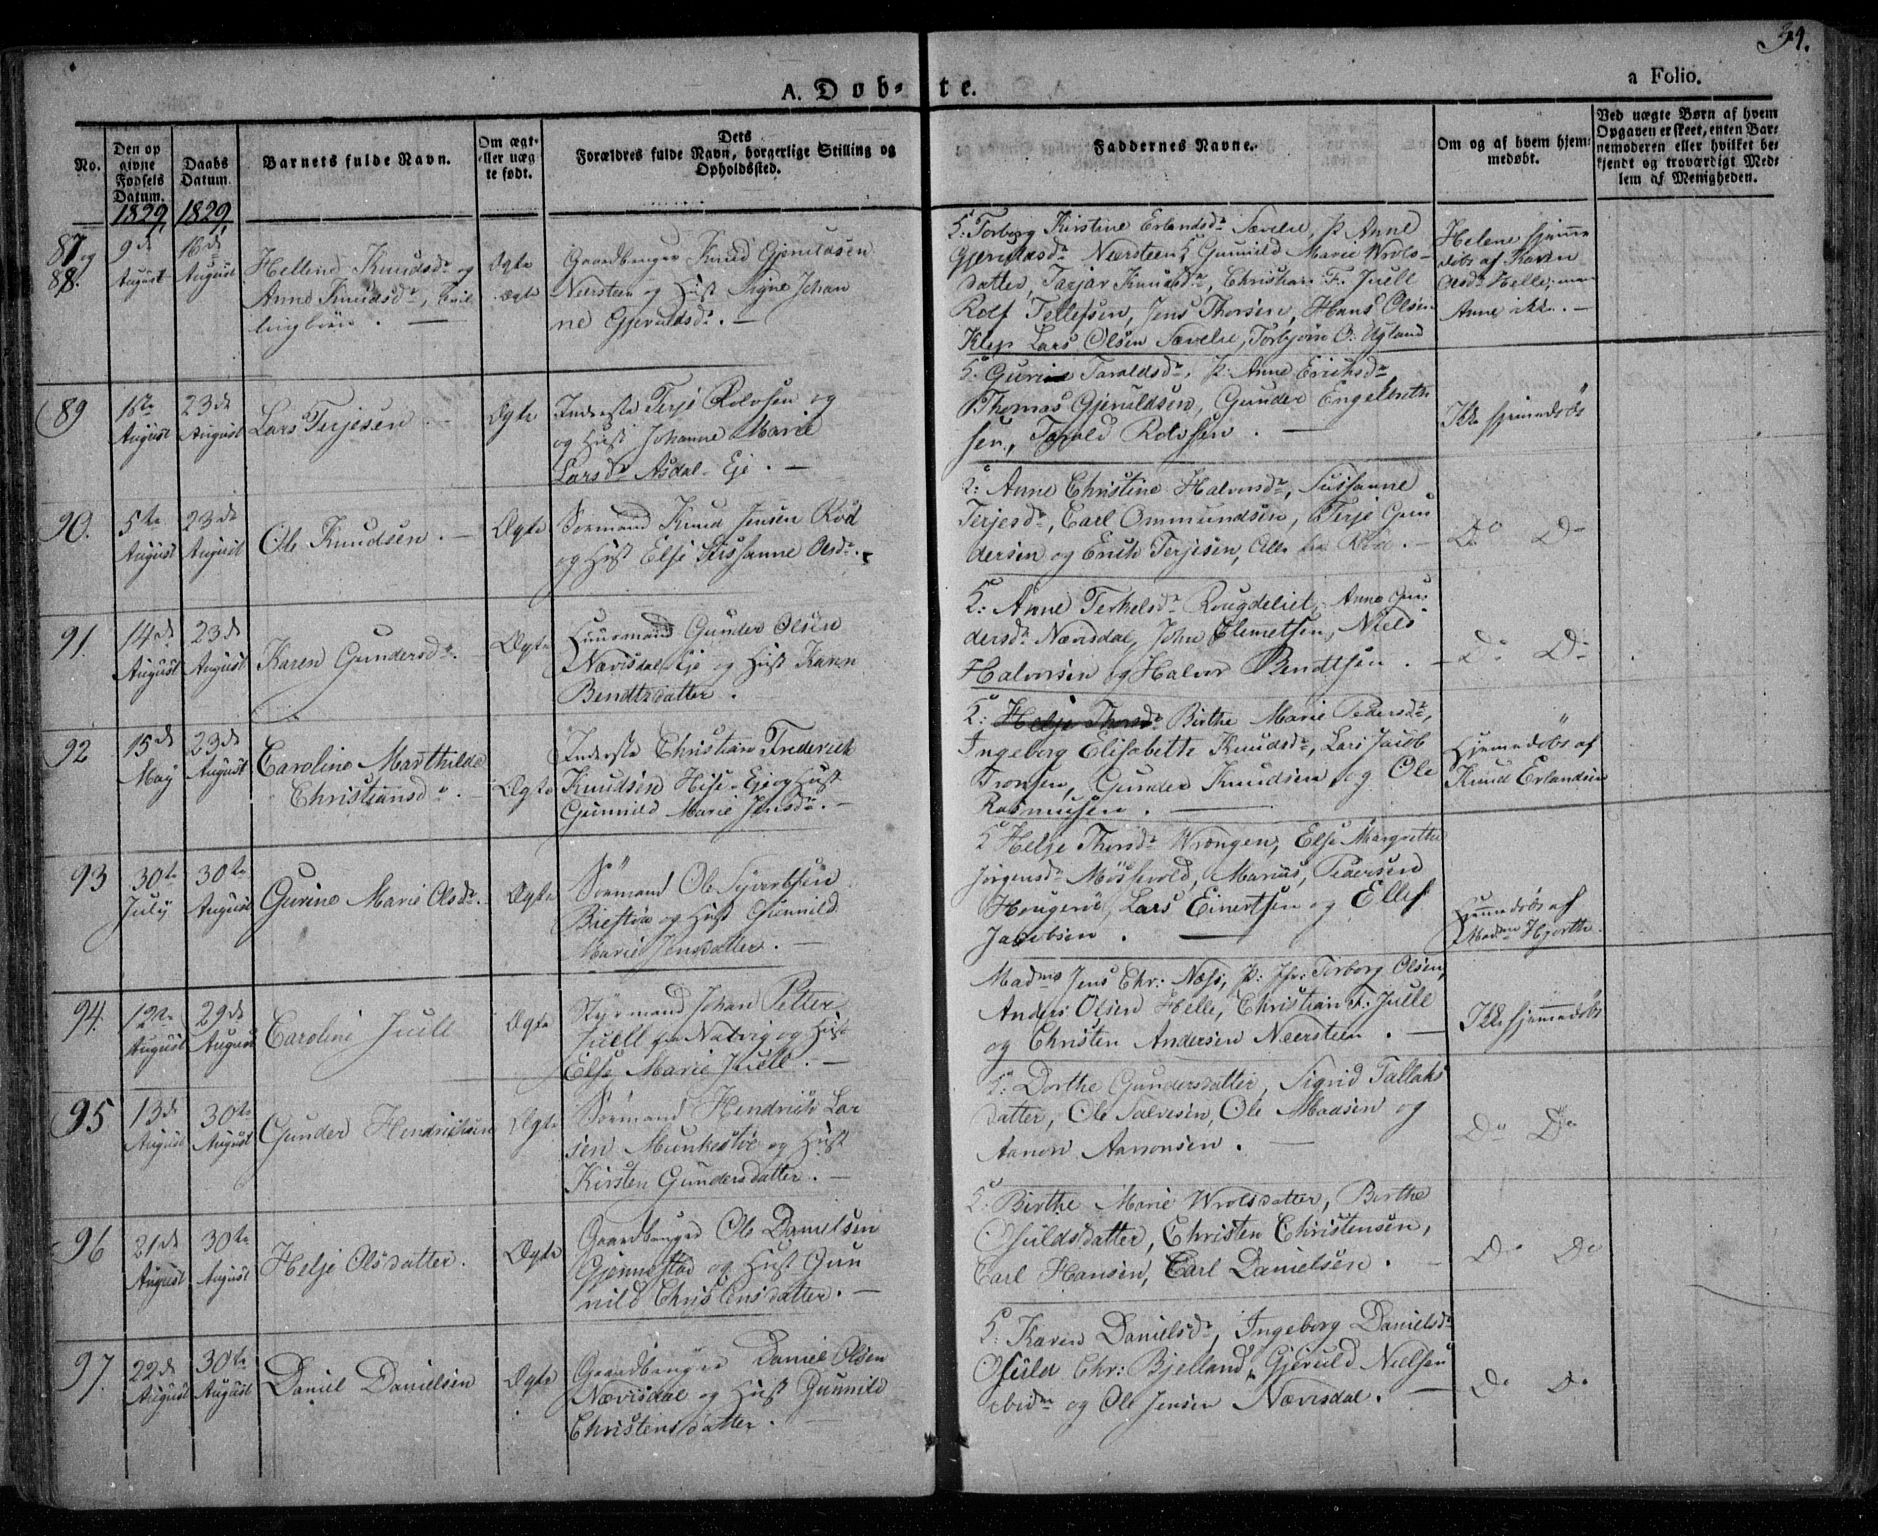 34.
A. Døb-te.
a Folio.
No.
Den op
givne
Fødsels
Datum.
1829
Daabs
Datum.
1829
Barnets fulde Navn.
Om ægt-
eller uæg-
te født.
Dets
Forældres fulde Navn, borgerlige Stilling og
Opholdssted.
Faddernes Navne.
Om og af hvem hjem-
medøbt.
Ved uægte Børn af hvem
Opgaven er skeet, enten Bar-
nemoderen eller hvilket be-
kjendt og troværdigt Med-
lem af Menigheden.
87 og
88.
9de
August
16de
August
Hellene Knudsdr og
Anne Knudsdr, Tvil
lingbörn. —
Ægte
Ægte
Gaardbruger Knud Gjeruldsen
Neersteen og Hust Signe Johan
ne Gjeruldsdr. —
S: Torborg Kirstine Erlandsdr Sævelie, p: Anne
Gjeruldsdr Neersteen, Gunnild Marie Wrols-
datter, Tarjær Knudsdr, Christian F. Juell
Rolf Tellefsen, Jens Thorsen, Hans Olsen
Klep Lars Olsen Sævelie, Torbjörn O. Ugland
Helene hjemme
döbt af Karen
Olsdr Helle, men
Anne ikke. —
89
1ste
August
23de
August
Lars Terjesen. —
Ægte
Inderste Terje Rolvsen og
og Hust Johanne Marie
Larsdr Asdal-Eje. —
S: Gurine Taraldsdr, p: Anne Erichsdr
Thomas Gjeruldsen, Gunder Engelbreth
sen, Tarald Rolvsen. —
Ikke hjemmedöbt
90.
5te
August
23de
August
Ole Knudsen. —
Ægte
Sørmand Knud Jensen Röd
og Hust Else Sussanne Olsdr.
S: Anne Christine Halvorsdr, Sussanne
Terjesdr, Carl Ommundsen, Terje Gun
dersen og Erich Terjesen, Alle fra Röd. —
Do Do
91.
14de
August
23de
August
Karen Gundersdr.
Ægte
Huusmand Gunder Olsen
Nævisdal-Eje og Hust Karen
Bendtsdatter.
S: Anne Terkelsdr Rougdeliet, Anne Gun
dersdr Nævisdal, John Clemetsen, Niels
Halvorsen og Halvor Bendtsen. —
Do Do
92
15de
May
23de
August
Caroline Marthilde
Christiansdr. —
Ægte
Inderste Christian Frederich
Knudsen Hise-Eje og Hust
Gunnild Marie Jensdr. —
S: Helje Thorsdr Birthe Marie Pedersdr,
Ingeborg Elisabette Knudsdr, Lars Jacob
Tronsen, Gunder Knudsen og Ole
Rasmussen. —
Hjemmedöbt af
Knud Erlandsen
93
30te
July
30te
August
Gurine Marie Olsdr.
Ægte
Sörmand Ole Syvertsen
Biestöe og Hust Gunnild
Marie Jensdatter. —
S Helje Thorsdr Wrengen, Else Margrethe
Jörgensdr Möskevold, Marius Pedersen
Hougene, Lars Einertsen og Ellef
Jacobsen. —
Hjemmedöbt af
Madme Hjorthe.
94.
12te
August
29de
August
Caroline Juell
Ægte
Styrmand Johan Petter
Juell fra Natvig og Hust
Else Marie Juell. —
Madme Jens Chr: Næss, p: Jfr: Torborg Olsen,
Anders Olsen Helle, Christian F. Juell
og Christen Andersen Neersteen. —
Ikke hjemmedöbt
95
13de
August
30te
August
Gunder Hendrichsen
Ægte
Sörmand Hendrich Lar
sen Munkestöe og Hust
Kirsten Gundersdatter. —
S: Dorthe Gundersdatter, Sigrid Tallaks
datter, Ole Salvesen, Ole Madsen og
Aanon Aanonsen. —
Do Do
96
21de
August
30te
August
Helje Olsdatter.
Ægte
Gaardbruger Ole Danielsen
Gjennestad og Hust Gun
nild Christensdatter. —
S: Birthe Marie Wrolsdatter, Birthe
Osuldsdatter, Christen Christensen,
Carl Hansen, Carl Danielsen. —
Do Do
97.
22de
August
30te
August
Daniel Danielsen
Ægte
Gaardbruger Daniel Olsen
Nævisdal og Hust Gunnild
Christensdatter. —
S: Karen Danielsdr, Ingeborg Danielsdr
Osuld Chr: Bjelland, Gjeruld Nielsen
ibidm og Ole Jensen Nævisdal. —
Do Do